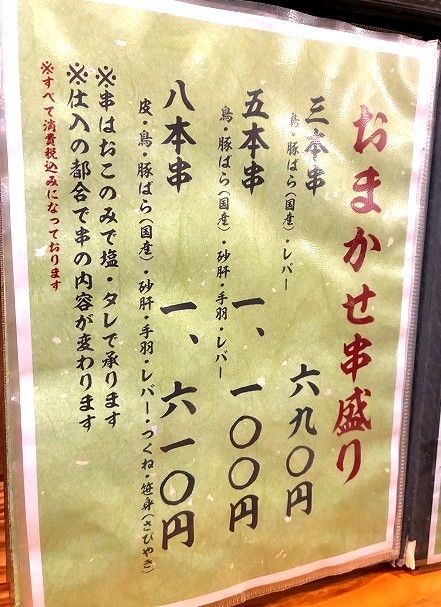 おまかせ串盛り
三本串　六九〇円
鳥・豚ばら(国産)・レバー
五本串　一、一〇〇円
鳥・豚ばら(国産)・砂肝・手羽・レバー
八本串　一、六一〇円
皮・鳥・豚ばら(国産)・砂肝・手羽・レバー・つくね・笹身(さびやき)
※串はおこのみで塩・タレで承ります
※仕入の都合で串の内容が変わります
※すべて消費税込みになっております